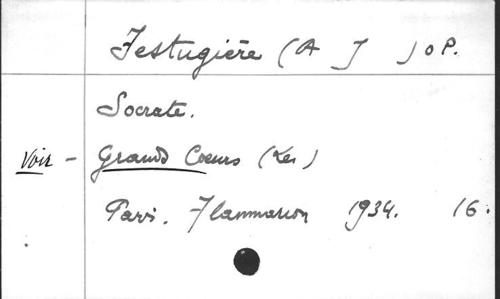 Festugière (A J) O P.
Socrate.
Voir - Grands Coeurs (Les)
Paris. Flammarion 1934. 16.